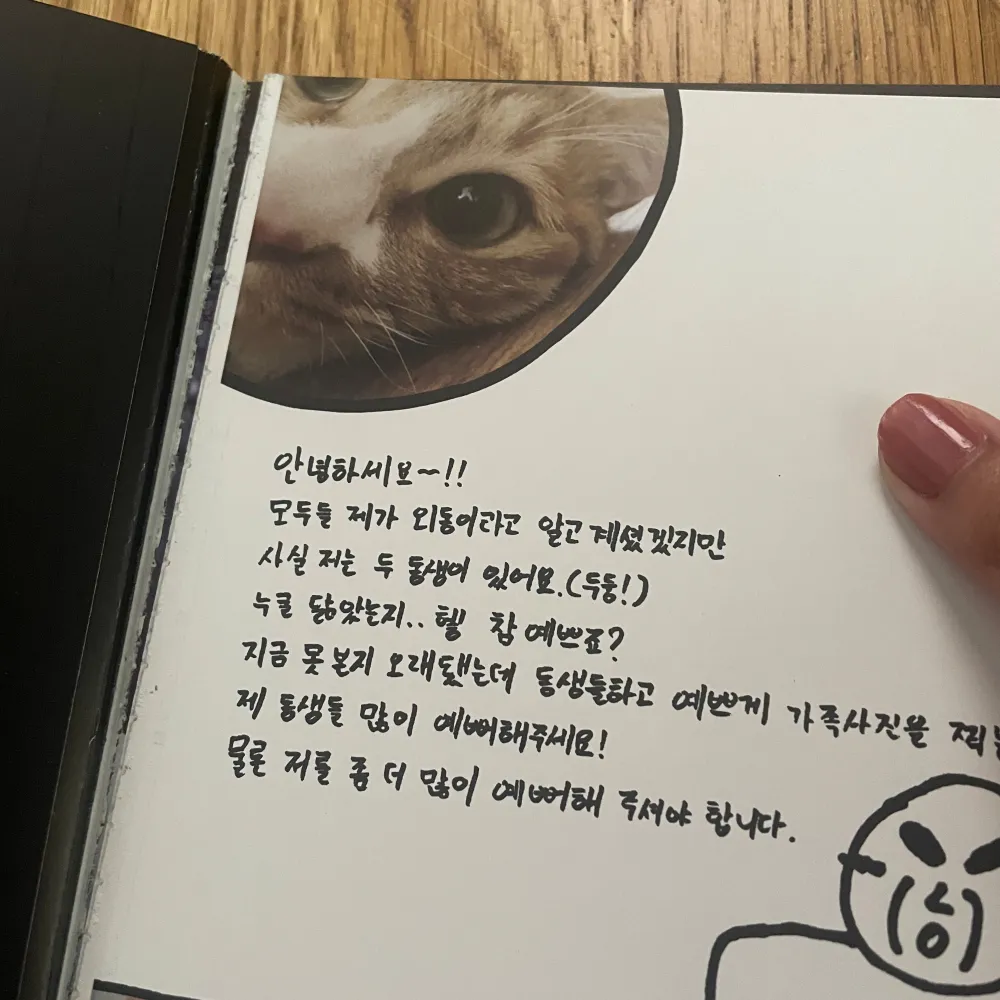 안녕하세요~!!
모두들 제가 외동이라고 알고 계셨겠지만
사실 저는 두 동생이 있어요.(두둥!)
누굴 닮았는지.. 헿 참 예쁘죠?
지금 못 본지 오래됐는데 동생들하고 예쁘게 가족사진을
제 동생들 많이 예뻐해주세요!
물론 저를 좀 더 많이 예뻐해 주셔야 합니다.
힝